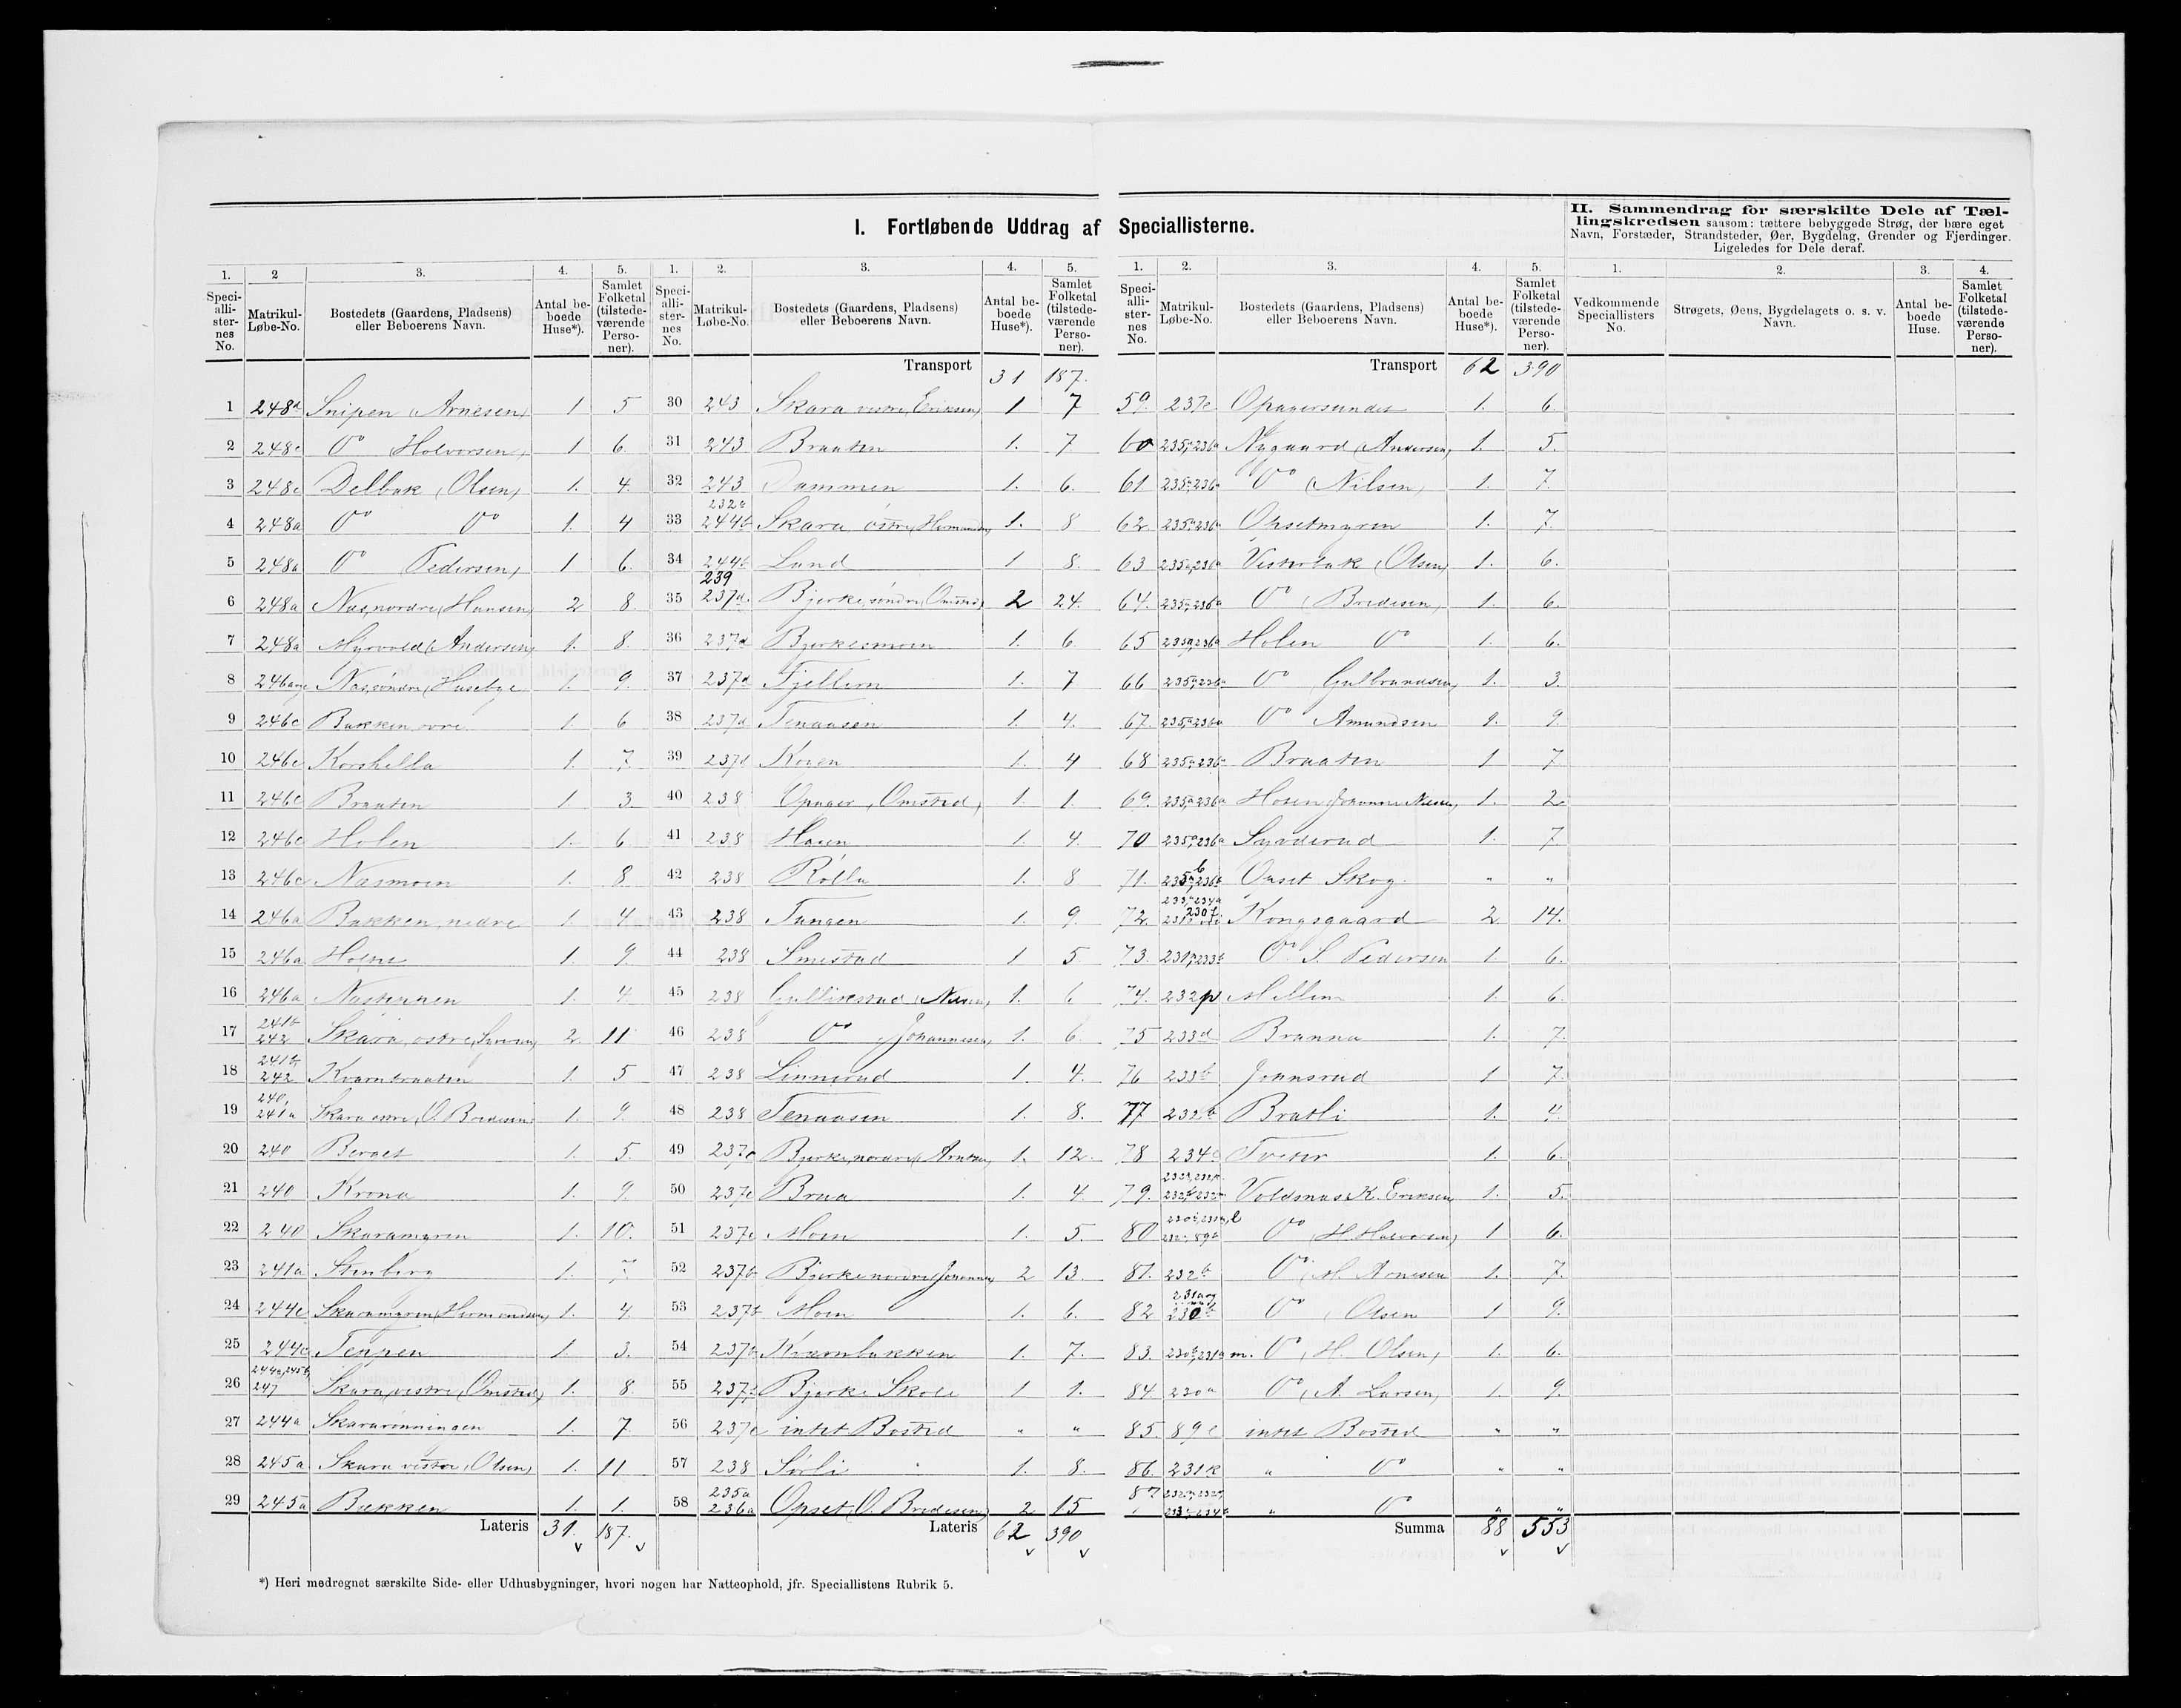 I. Fortløbende Uddrag af Speciallisterne.
II. Sammendrag for særskilte Dele af Tællingskredsen saasom: tættere bebyggede Strøg, der bære eget Navn, Forstæder, Strandsteder, Øer, Bygdelag, Grender og Fjerdinger. Ligeledes for Dele deraf.
1. 2 3. 4. 5.
Speciallisternes No. Matrikul-Løbe-No. Bostedets (Gaardens, Pladsens) eller Beboerens Navn. Antal beboede Huse*). Samlet Folketal (tilstedeværende Personer).
1 248d Snipen (Arnesen) 1 5
2 248c Do Holvorsen, 1 6.
3 248c Delbak (Olsen) 1. 4.
4 248a Do Do 1. 4
5 248a Do Pedersen) 1 6.
6 248a Næs, nordre (Hansen) 2 8.
7 248a Myrvold (Andersen) 1. 8.
8 246 Næs, søndre, Husebye 1. 9.
9 246c Bakken øvre 1. 6
10 246c Korshella 1. 7.
11 246c Braaten 1. 3.
12 246c Holen 1. 6.
13 246c Næsmoen 1. 8.
14 246a Bakken, nedre 1. 4
15 246a 1. 9.
16 246a 1. 4.
17 241b 242 Skara, østre, 2. 11
18 241b, 242 Kvarnbraaten 1. 5
19 240, 241a Skara østre, O. Bredesen 1. 9.
20 240 Berget 1. 5.
21 240 Krona 1. 9.
22 240 Skaramyren 1. 10.
23 241a Stenberg 1. 7.
24 244c Skaramyren (Hermandsen) 1. 4.
25 244c Teppen 1. 3.
26 244a, 245b, 247 Skara, vestre (Omsted) 1. 8.
27 244a Skararønningen 1. 7.
28 245a Skara vestre, (Olsen) 1. 11
29 245a Bakken 1. 1.
Lateris 31. 187.
1. 2. 3. 4. 5.
Speciallisternes No. Matrikul-Løbe-No. Bostedets (Gaardens, Pladsens) eller Beboerens Navn. Antal beboede Huse*). Samlet Folketal (tilstedeværende Personer).
Transport 31 187.
30 243 Skara vestre, Eriksen) 1 7
31 243 Braaten 1. 7
32 243 Dammen 1. 6.
33 232b 244b Skara, østre, Hermansen 1. 8
34 244b Lund 1 8.
35 239 237d. Bjerke, søndre, (Omsted) 2 24.
36 237d Bjerkesmoen 1. 6
37 237d Fjellien 1. 7
38 237d Tenaasen 1. 4.
39 237d Koien 1. 4
40 238 Opager, Omsted, 1. 1.
41 238 Hagen 1. 4.
42 238 Rólla 1. 8.
43 238 Tangen 1. 9.
44 238 Smestad 1 5.
45 238 Gulliksrud (Nilsen) 1. 6
46 238 Do Johannesen, 1. 6.
47 238 Linnerud 1. 4.
48 238 Tenaasen 1. 8.
49 237c Bjerke, nordre, Arntsen, 1. 12.
50 237c Braa 1. 4.
51 237c Moen 1. 5.
52 237b Bjerke nordre, 2 13.
53 237b Moen 1. 6.
54 237b Kværnbakken 1. 7.
55 237 Bjerke Skole 1 1.
56 237c intet Bosted " "
57 238 Sørli 1. 8.
58 235a 236a Opset, O. Bredesen) 2 15
Lateris 62 390
1. 2. 3. 4. 5.
Speciallisternes No. Matrikul-Løbe-No. Bostedets (Gaardens, Pladsens) eller Beboerens Navn. Antal beboede Huse*). Samlet Folketal (tilstedeværende Personer).
Transport 62 390
59. 237c Opagersundet 1. 6.
60 235a, 236a Nygaard (Andersen) 1. 5.
61 235a, 236a Do (Nilsen) 1. 7.
62 235a, 236a Opsetmyren 1. 7.
63 235a, 236a Vesterbak (Olsen) 1. 6.
64. 235a, 236a Do (Bredesen) 1. 6.
65 235a, 236a Holen Do 1. 6.
66 235a, 236a Do Gulbrandsen, 1. 3.
67. 235a, 236a Do Amundsen 1. 9.
68 235a, 236a Braaten 1 7.
69. 235a, 236a Hosen Johannes Nilsen, 1. 2
70 235a, 236a Syvderud 1. 7.
71. Opset Skog. " "
72. Kongsgaard 2 14.
73. Do S. Pedersen 1. 6.
74. 232p Mellem 1. 6.
75 233d Branna 1. 7.
76 233b Jonnsrud 1 7.
77 232b Bratli 1. 4.
78 234c Tveter 1. 6.
79. Voldsnæs K. Eriksen 1. 5.
80 Do H. Halvorsen) 1 6.
81. 232b Do M. Arnesen 1. 7.
82 230b Do (Olsen 1 9.
83. 230b, 231a m. Do, H. Olsen, 1. 6.
84. 230a Do (A. Larsen) 1. 9.
85. 89e intet Bosted " "
86. 231k " Do " "
87 " Do " "
Summa 88 553
1. 2. 3. 4.
Vedkommende Speciallisters No. Strøgets, Øens, Bygdelagets o. s. v. Navn. Antal beboede Huse. Samlet Folketal (tilstedeværende Personer).
*) Heri medregnet særskilte Side- eller Udhusbygninger, hvori nogen har Natteophold, jfr. Speciallistens Rubrik 5.